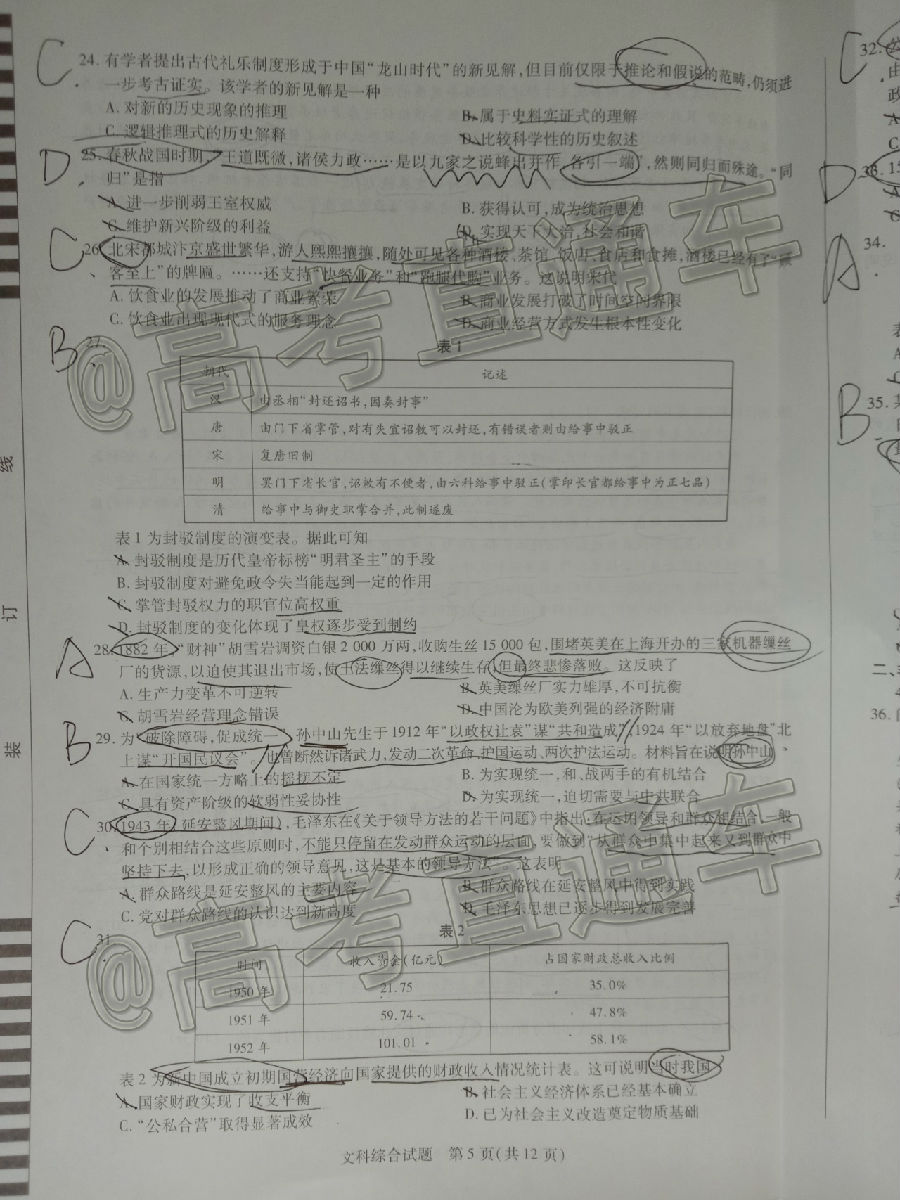 C
24. 有学者提出古代礼乐制度形成于中国“龙山时代”的新见解,但目前仅限于推论和假说的范畴,仍须进
一步考古证实。该学者的新见解是一种
A. 对新的历史现象的推理
B. 属于史料实证式的理解
C. 逻辑推理式的历史解释
D. 比较科学性的历史叙述
D
25. 春秋战国时期,“王道既微,诸侯力政……是以九家之说蜂出并作,各引一端”,然则同归而殊途。“同
归”是指
A. 进一步削弱王室权威
B. 获得认可,成为统治思想
C. 维护新兴阶级的利益
D. 实现天下大治,社会和谐
C
26. 北宋都城汴京盛世繁华,游人熙熙攘攘,随处可见各种酒楼、茶馆、饭店、食店和食摊,酒楼已经有了“顾
客至上”的牌匾。……还支持“快餐业务”和“跑腿代购”业务。这说明宋代
A. 饮食业的发展推动了商业繁荣
B. 商业发展打破了时间空间界限
C. 饮食业出现现代式的服务理念
D. 商业经营方式发生根本性变化
B
27.
表1
朝代 记述
汉 由丞相“封还诏书,因奏封事”
唐 由门下省掌管,对有失宜诏敕可以封还,有错误者则由给事中驳正
宋 复唐旧制
明 罢门下省长官,诏敕有不便者,由六科给事中驳正(掌印长官都给事中为正七品)
清 给事中与御史职掌合并,此制遂废
表1为封驳制度的演变表。据此可知
A. 封驳制度是历代皇帝标榜“明君圣主”的手段
B. 封驳制度对避免政令失当能起到一定的作用
C. 掌管封驳权力的职官位高权重
D. 封驳制度的变化体现了皇权逐步受到制约
A
28. 1882年,“财神”胡雪岩调资白银2 000万两,收购生丝15 000包,围堵英美在上海开办的三家机器缫丝
厂的货源,以迫使其退出市场,使手工缫丝得以继续生存,但最终悲惨落败。这反映了
A. 生产力变革不可逆转
B. 英美缫丝厂实力雄厚,不可抗衡
C. 胡雪岩经营理念错误
D. 中国沦为欧美列强的经济附庸
B
29. 为“破除障碍,促成统一”,孙中山先生于1912年“以政权让袁”谋“共和造成”,1924年“以放弃地盘”北
上谋“开国民议会”,也曾断然诉诸武力,发动二次革命、护国运动、两次护法运动。材料旨在说明孙中山
A. 在国家统一方略上的摇摆不定
B. 为实现统一,和、战两手的有机结合
C. 具有资产阶级的软弱性妥协性
D. 为实现统一,迫切需要与中共联合
C
30. 1943年,延安整风期间,毛泽东在《关于领导方法的若干问题》中指出,在运用领导和群众相结合、一般
和个别相结合这些原则时,不能只停留在发动群众运动的层面,要做到“从群众中集中起来又到群众中
坚持下去,以形成正确的领导意见,这是基本的领导方法”。这表明
A. 群众路线是延安整风的主要内容
B. 群众路线在延安整风中得到实践
C. 党对群众路线的认识达到新高度
D. 毛泽东思想已逐步得到发展完善
C
31.
表2
时间 收入资金(亿元) 占国家财政总收入比例
1950年 21.75 35.0%
1951年 59.74 47.8%
1952年 101.01 58.1%
表2为新中国成立初期国营经济向国家提供的财政收入情况统计表。这可说明当时我国
A. 国家财政实现了收支平衡
B. 社会主义经济体系已经基本确立
C. “公私合营”取得显著成效
D. 已为社会主义改造奠定物质基础
文科综合试题 第5页(共12页)
@高考直通车
@高考直通车
线
订
装
C
32.
由
政
A
C
D
33. 15
A
34.
表
A
B
35.
二、
36.